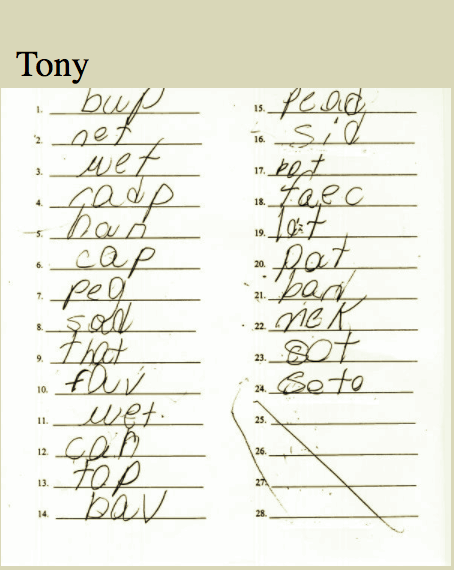 Tony
1. bup
2. net
3. wet
4. cadp
5. han
6. cap
7. peg
8. sad
9. that
10. fav
11. wet.
12. can
13. top
14. bav
15. pead
16. sid
17. pot
18. taec
19. lot
20. pat
21. ban
22. nek
23. sot
24. seto
25.
26.
27.
28.